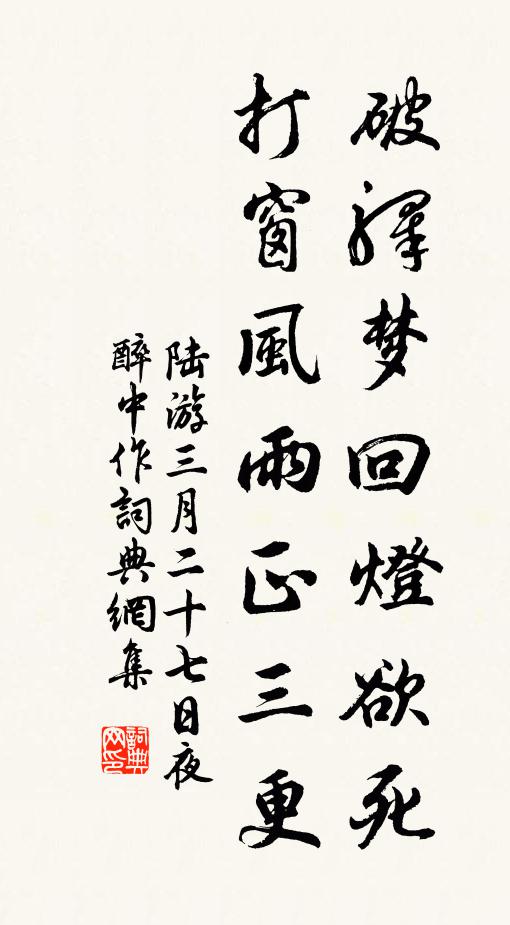 破驛梦回燈欲死
打窗風雨正三更
陆游三月二十七日夜
醉中作詞典網集
詞典
网印